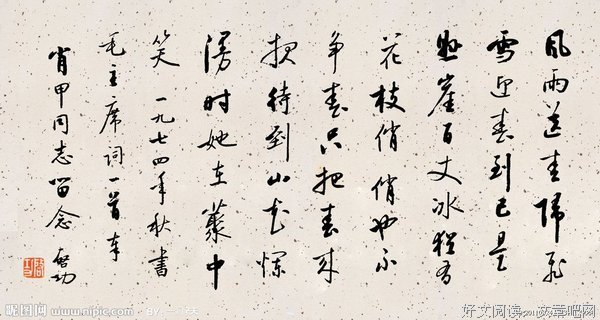 风雨送春归飞
雪迎春到已是
悬崖百丈冰犹有
花枝俏俏也不
争春只把春来
报待到山花烂
漫时她在叢中
笑 一九七四年秋書
毛主席词一首奉
肖甲同志留念 启功
昵图网 www.nipic.com BY:
好文阅读 文章吧网